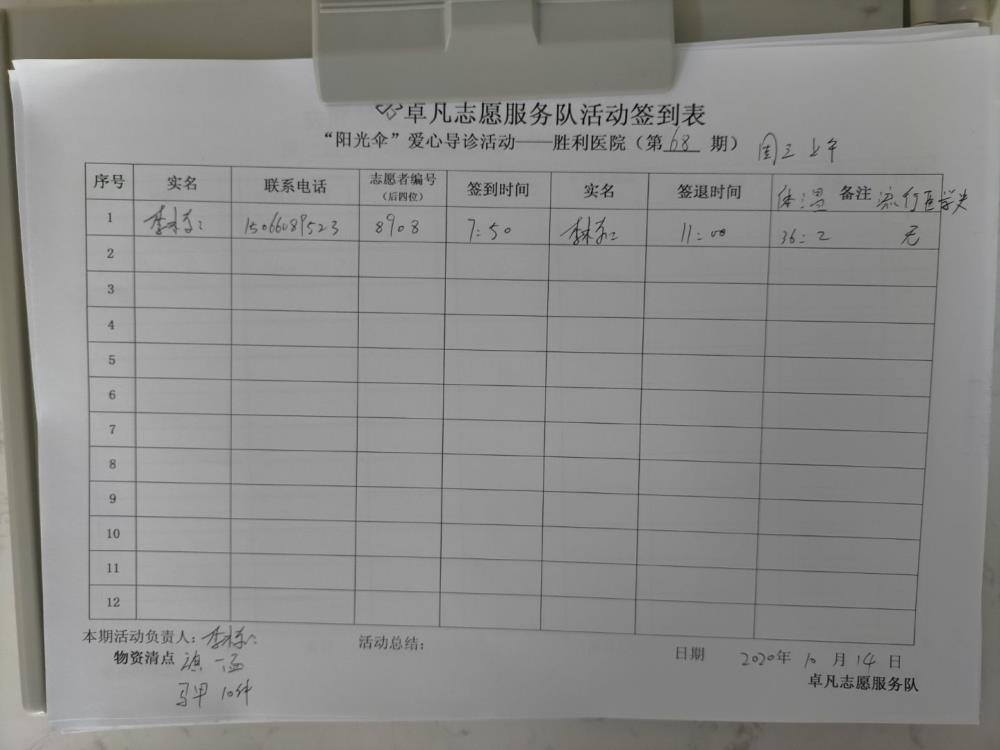 卓凡志愿服务队活动签到表
“阳光伞”爱心导诊活动——胜利医院（第68期） 周三上午
序号 实名 联系电话 志愿者编号（后四位） 签到时间 实名 签退时间 体温 备注 流行医学史
1 15066089523 8908 7:50 11:00 36:2 无
2
3
4
5
6
7
8
9
10
11
12
本期活动负责人: 活动总结: 日期 2020年10月14日
物资清点 旗一面 卓凡志愿服务队
马甲 10件